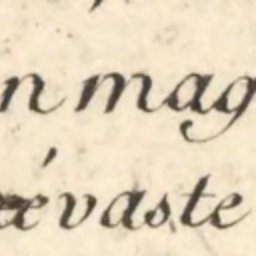 n mag
évaste